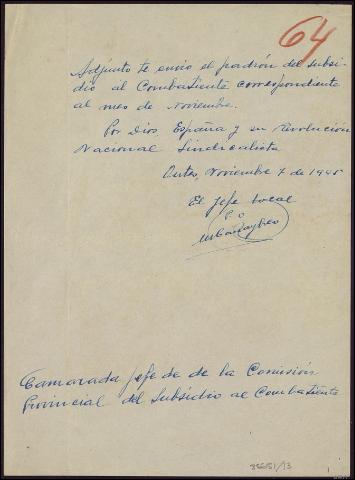 64
Adjunto te envio el padrón del subsi-
dio al Combatiente correspondiente
al mes de Noviembre.
Por Dios, España y su Revolución
Nacional Sindicalista
Noviembre 7 de
El Jefe local
P.O
Camarada Jefe de de la Comisión
Provincial del Subsidio al Combatiente